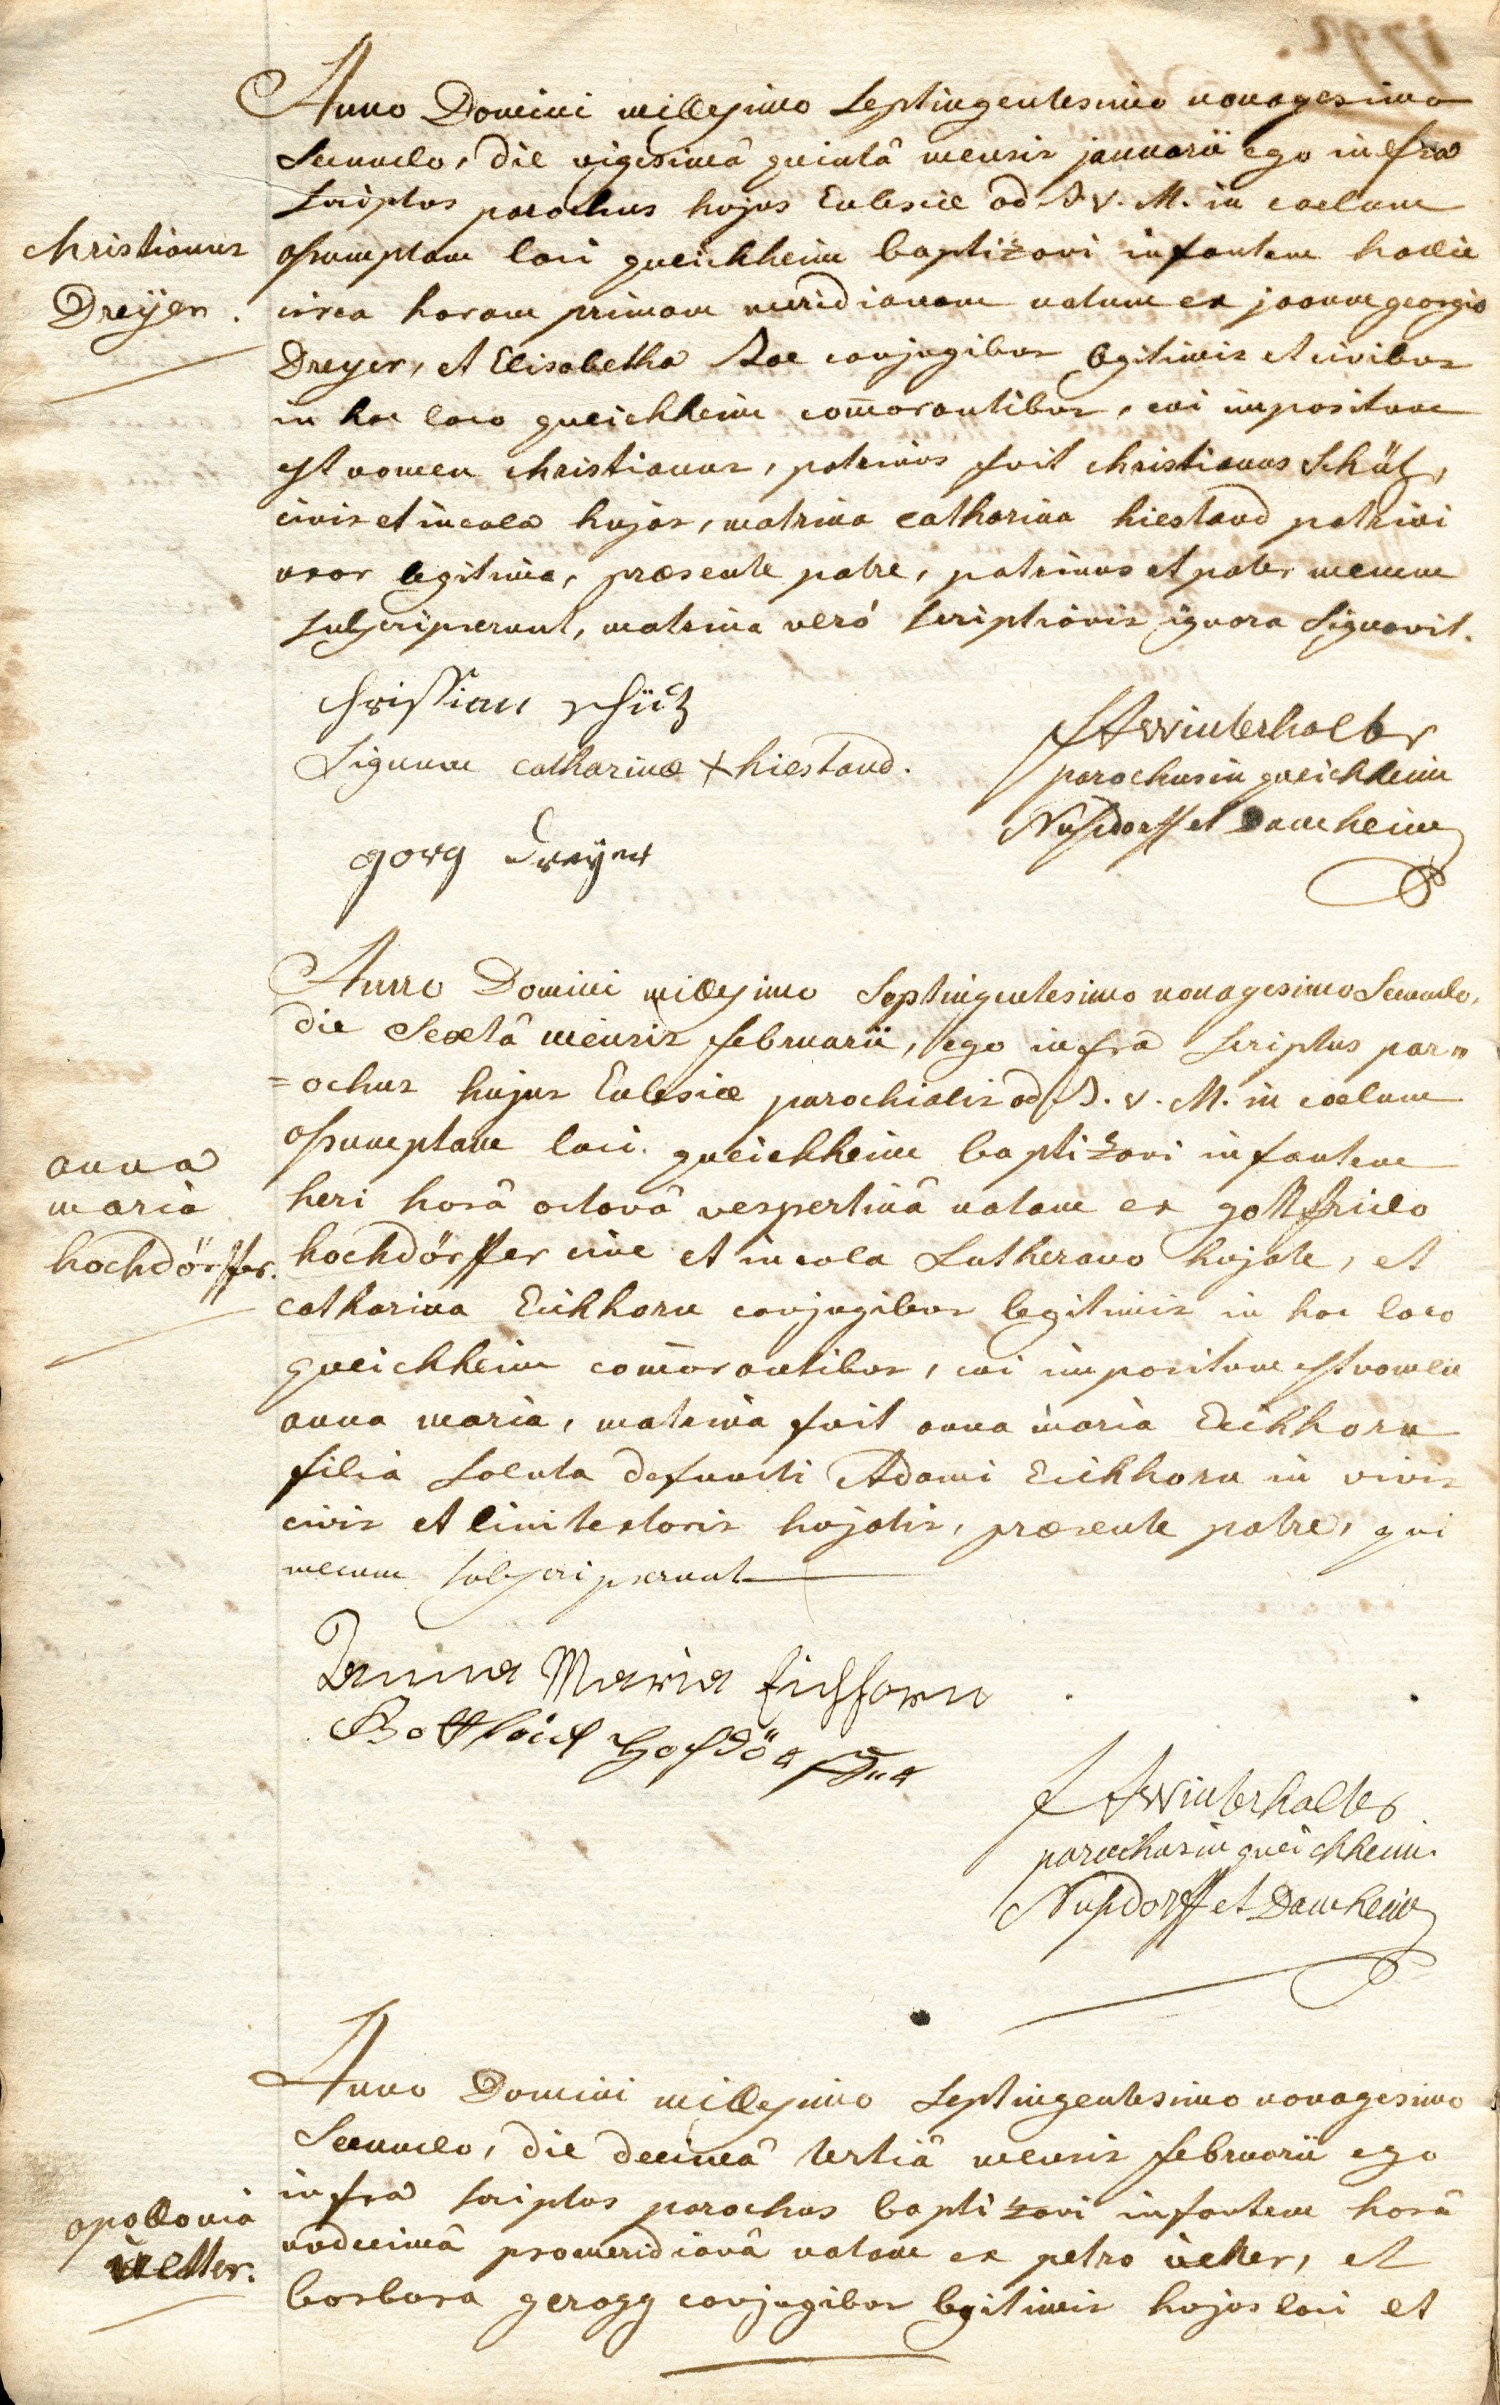 Anno Domini millesimo Septingentesimo nonagesimo
Secundo, die vigesimâ quintâ mensis januarii ego infra
Scriptus parochus hujus Eclesiæ ad B. V. M. in caelum
assumptam loci queichheim baptizavi infantem hodie
christianus
Dreÿer.
circa horam primam meridianam natum ex joanne georgio
Dreyer, et Elisabetha conjugibus legitimis et civibus
in hoc loco queichheim com̄orantibus, cui impositum
est nomen christianus, patrinus fuit christianus Schüz,
civis et incola hujas, matrina catharina hiestand patrini
uxor legitima, præsente patre, patrinus et pater mecum
subscripserunt, matrina veró scriptionis ignara Signavit.
christian schütz
Signum catharinæ + hiestand.
georg Dreÿer
FAWinterhalter
parochus in queichheim
Nussdorff et Damheim
Anno Domini millesimo Septingentesimo nonagesimo Secundo,
die Sextâ mensis februarii, ego infra Scriptus par=
=ochus hujus Eclesiæ parochialis ad B. V. M. in caelum
assumptam loci queichheim baptizavi infantem
anna
maria
hochdörffer.
heri horâ octavâ vespertinâ natam ex gottfrido
hochdörffer cive et incola Lutherano hujate, et
catharina Eichhorn conjugibus legitimis in hoc loco
queichheim com̄orantibus, cui impositum est nomen
anna maria, matrina fuit anna maria Eichhorn
filia Soluta defuncti Adami Eichhorn in vivis
civis et linitextoris hujatis, præsente patre, qui
mecum subscripserunt
Anna Maria Eichhorn
Gottfried Hochdörffer
FAWinterhalter
parochus in queichheim.
Nussdorff et Damheim
Anno Domini millesimo Septingentesimo nonagesimo
Secundo, die decimâ tertiâ mensis februarii ego
infra Scriptus parochus baptizavi infantem horâ
apollonia
vetter.
undecimâ promeridianâ natam ex petro vetter, et
barbara gerogg conjugibus legitimis hujus loci et